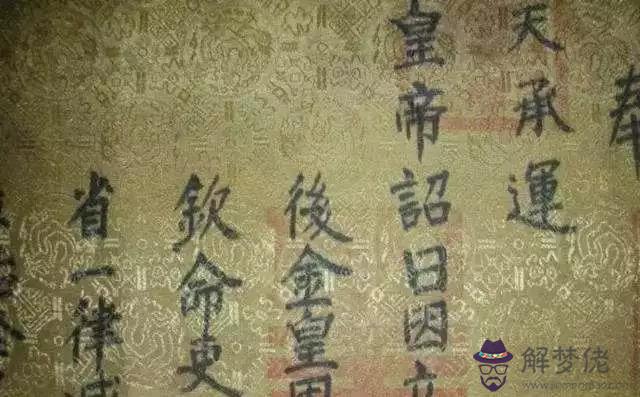 奉
天承運
皇帝詔曰因立
後金皇
欽命吏
省一律
解梦佬
www.jiemenglao.com